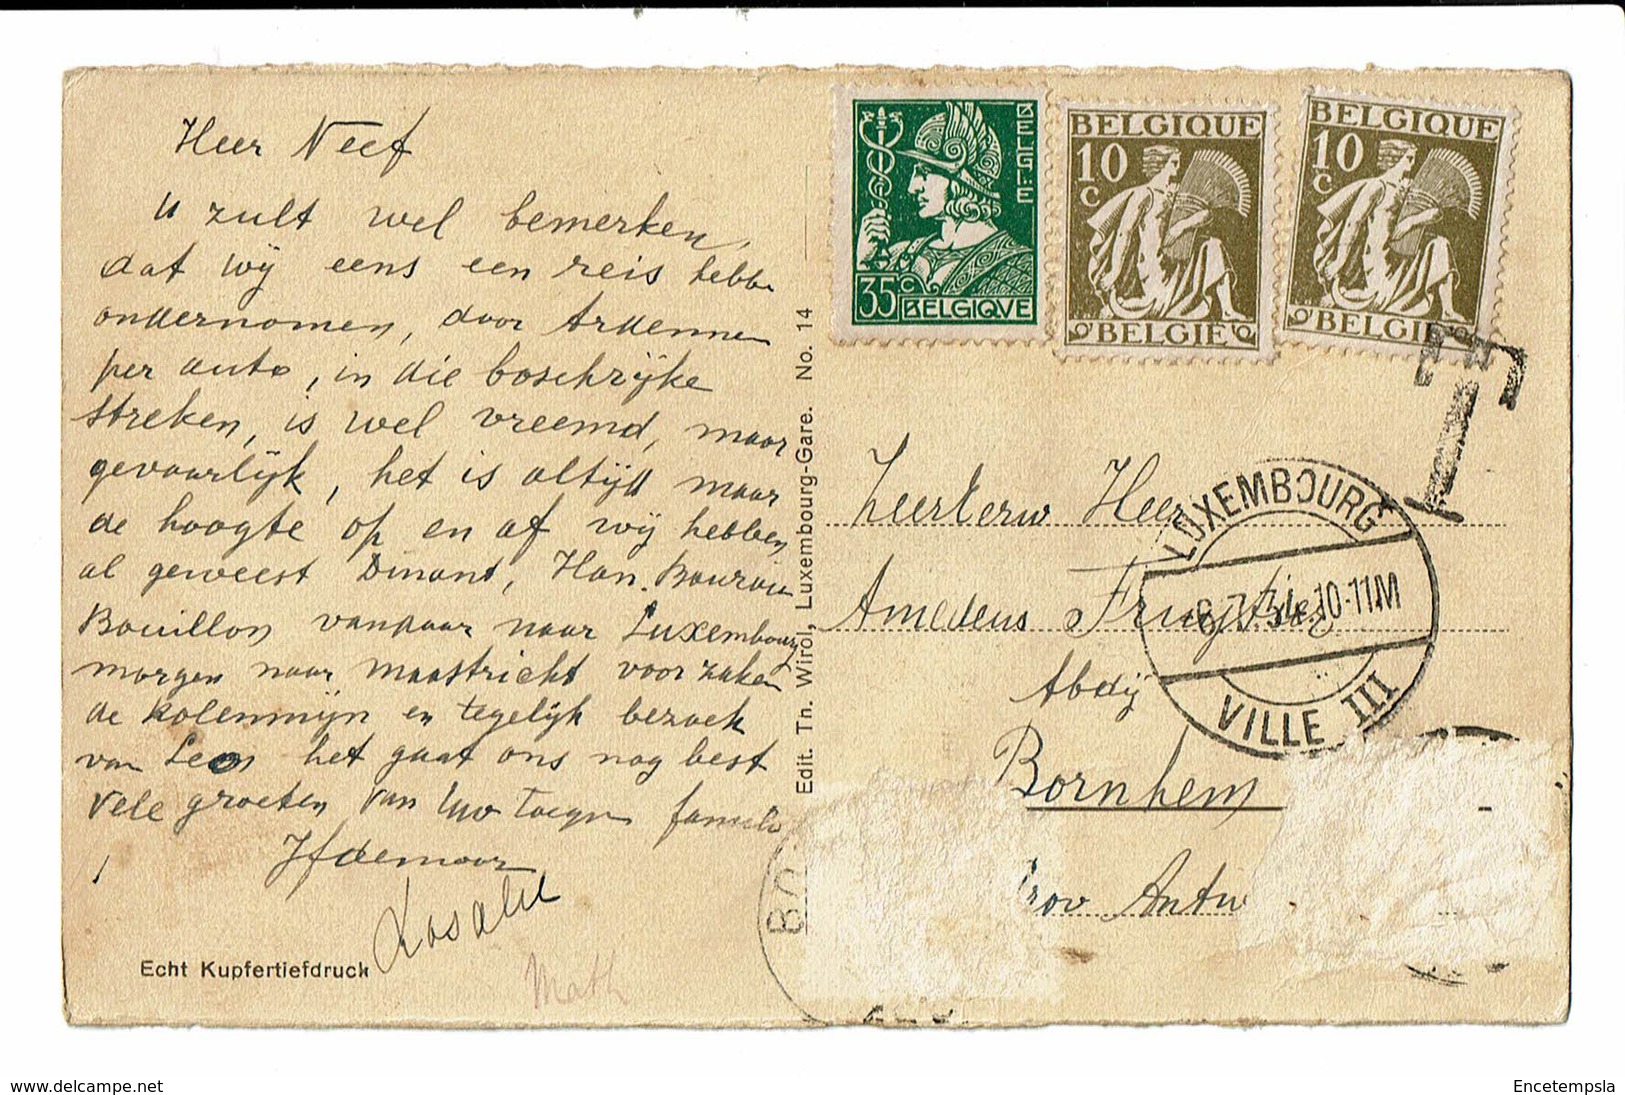 Heer Neef
U zult wel bemerken,
dat wij eens een reis hebben
ondernomen, door Ardennen
per auto, in die boschrijke
streken, is wel vreemd, maar
gevaarlijk, het is altijd maar
de hoogte op en af wij hebben
al geweest Dinant, Han.
Bouillon vandaar naar Luxembourg
morgen naar Maastricht voor zaken
de kolenmijn en tegelijk bezoek
van Leon het gaat ons nog best
Vele groeten van Uw familie
Rosalie
Math
Echt Kupfertiefdruck
Edit. Tn. Wirol, Luxembourg-Gare. No. 14
BELGIE
35 C
BELGIQVE
BELGIQUE
10 C
BELGIE
BELGIQUE
10 C
BELGIE
T
LUXEMBOURG
6.7.34. 10-11M
VILLE III
Zeereerw Heer
Amedeus
Abdij
Bornhem
Prov Antw
www.delcampe.net
Encetempsla